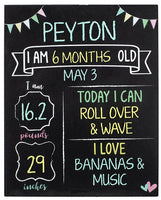 PEYTON
I AM 6 MONTHS OLD
MAY 3
I am
16.2
pounds
29
inches
TODAY I CAN
ROLL OVER
& WAVE
I LOVE
BANANAS &
MUSIC